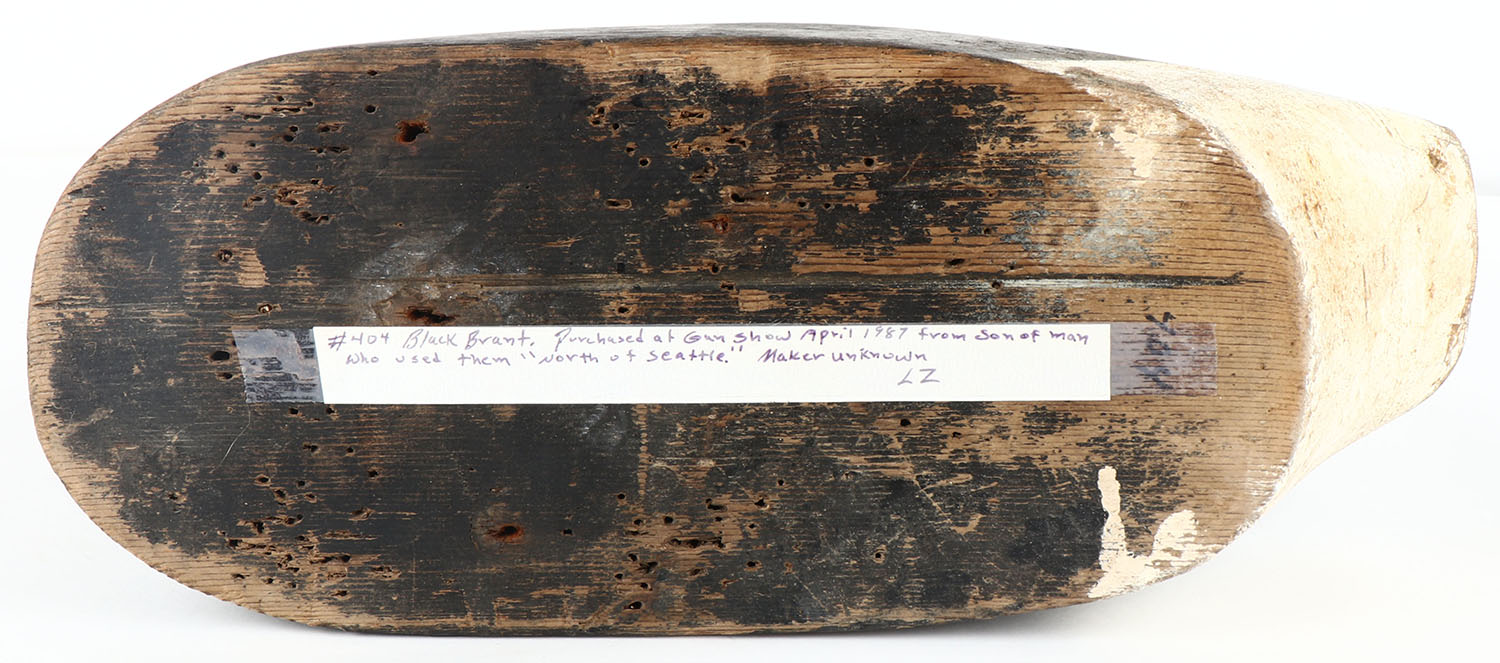 #404 Black Brant. Purchased at Gun Show April 1987 from Son of man
who used them "North of Seattle." Maker unknown
LZ